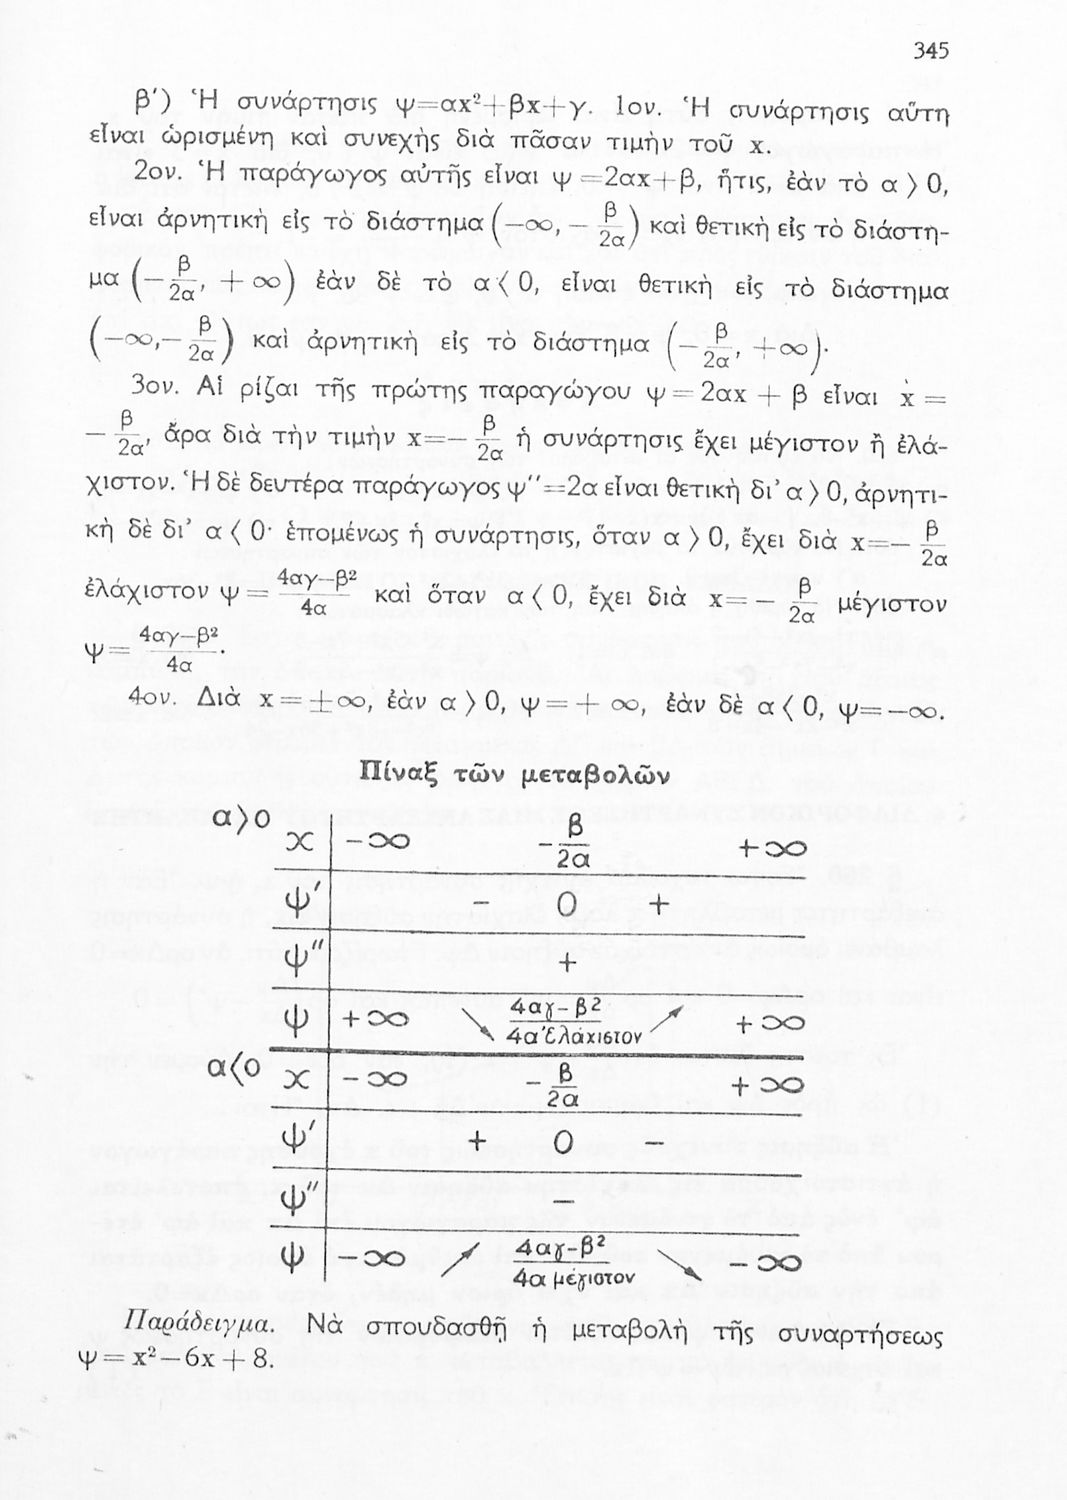 345
β') Ἡ συνάρτησις ψ=αx²+βx+γ. 1ον. Ἡ συνάρτησις αὕτη
εἶναι ὡρισμένη καὶ συνεχὴς διὰ πᾶσαν τιμὴν τοῦ x.
2ον. Ἡ παράγωγος αὐτῆς εἶναι ψ =2αx+β, ἥτις, ἐὰν τὸ α > 0,
εἶναι ἀρνητικὴ εἰς τὸ διάστημα (−∞, − β/2α) καὶ θετικὴ εἰς τὸ διάστη-
μα (− β/2α, + ∞) ἐὰν δὲ τὸ α < 0, εἶναι θετικὴ εἰς τὸ διάστημα
(−∞,− β/2α) καὶ ἀρνητικὴ εἰς τὸ διάστημα (− β/2α, +∞).
3ον. Αἱ ρίζαι τῆς πρώτης παραγώγου ψ = 2αx + β εἶναι x =
− β/2α, ἄρα διὰ τὴν τιμὴν x=− β/2α ἡ συνάρτησις ἔχει μέγιστον ἢ ἐλά-
χιστον. Ἡ δὲ δευτέρα παράγωγος ψ''=2α εἶναι θετικὴ δι' α > 0, ἀρνητι-
κὴ δὲ δι' α < 0· ἑπομένως ἡ συνάρτησις, ὅταν α > 0, ἔχει διὰ x=− β/2α
ἐλάχιστον ψ = 4αγ−β²/4α καὶ ὅταν α < 0, ἔχει διὰ x= − β/2α μέγιστον
ψ= 4αγ−β²/4α.
4ον. Διὰ x = ±∞, ἐὰν α > 0, ψ = + ∞, ἐὰν δὲ α < 0, ψ=−∞.
Πίναξ τῶν μεταβολῶν
α>0 x −∞ −β/2α +∞
ψ' − 0 +
ψ'' +
ψ +∞ ↘ 4αγ−β²/4α Ἐλάχιστον ↗ +∞
α<0 x −∞ −β/2α +∞
ψ' + 0 −
ψ'' −
ψ −∞ ↗ 4αγ−β²/4α μέγιστον ↘ −∞
Παράδειγμα. Νὰ σπουδασθῇ ἡ μεταβολὴ τῆς συναρτήσεως
ψ = x²−6x + 8.